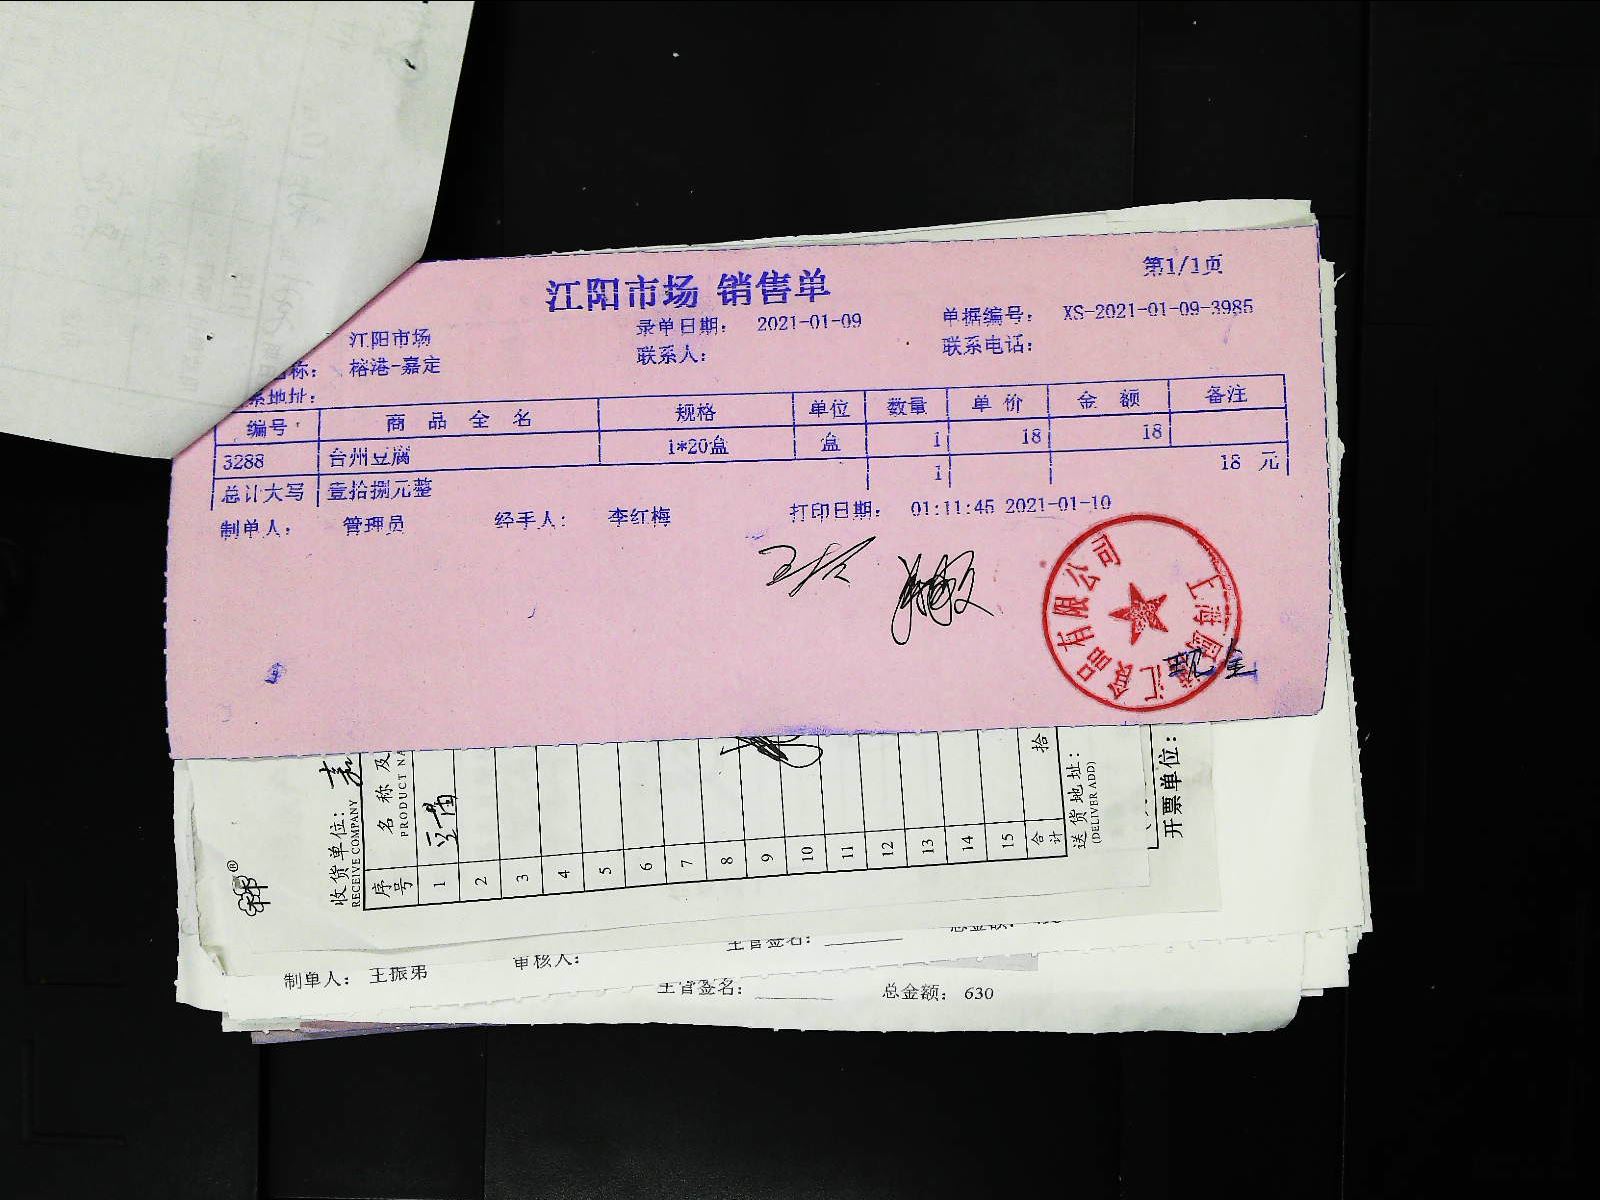 江阳市场 销售单
第1/1页
江阳市场 录单日期： 2021-01-09 单据编号： XS-2021-01-09-3985
称： 榕港-嘉定 联系人： 联系电话：
系地址：
编号 商品全名 规格 单位 数量 单价 金额 备注
3288 台州豆腐 1*20盒 盒 1 18 18
总计大写 壹拾捌元整 1 18 元
制单人： 管理员 经手人： 李红梅 打印日期： 01:11:45 2021-01-10
上海 汇食品有限公司
现金
收货单位：
RECEIVE COMPANY
序号 名称及
PRODUCT NA
1
2
3
4
5
6
7
8
9
10
11
12
13
14
15
合计 拾
送货地址：
(DELIVER ADD)
开票单位：
主管签名： 总金额：
制单人： 王振弟 审核人：
主管签名： 总金额： 630